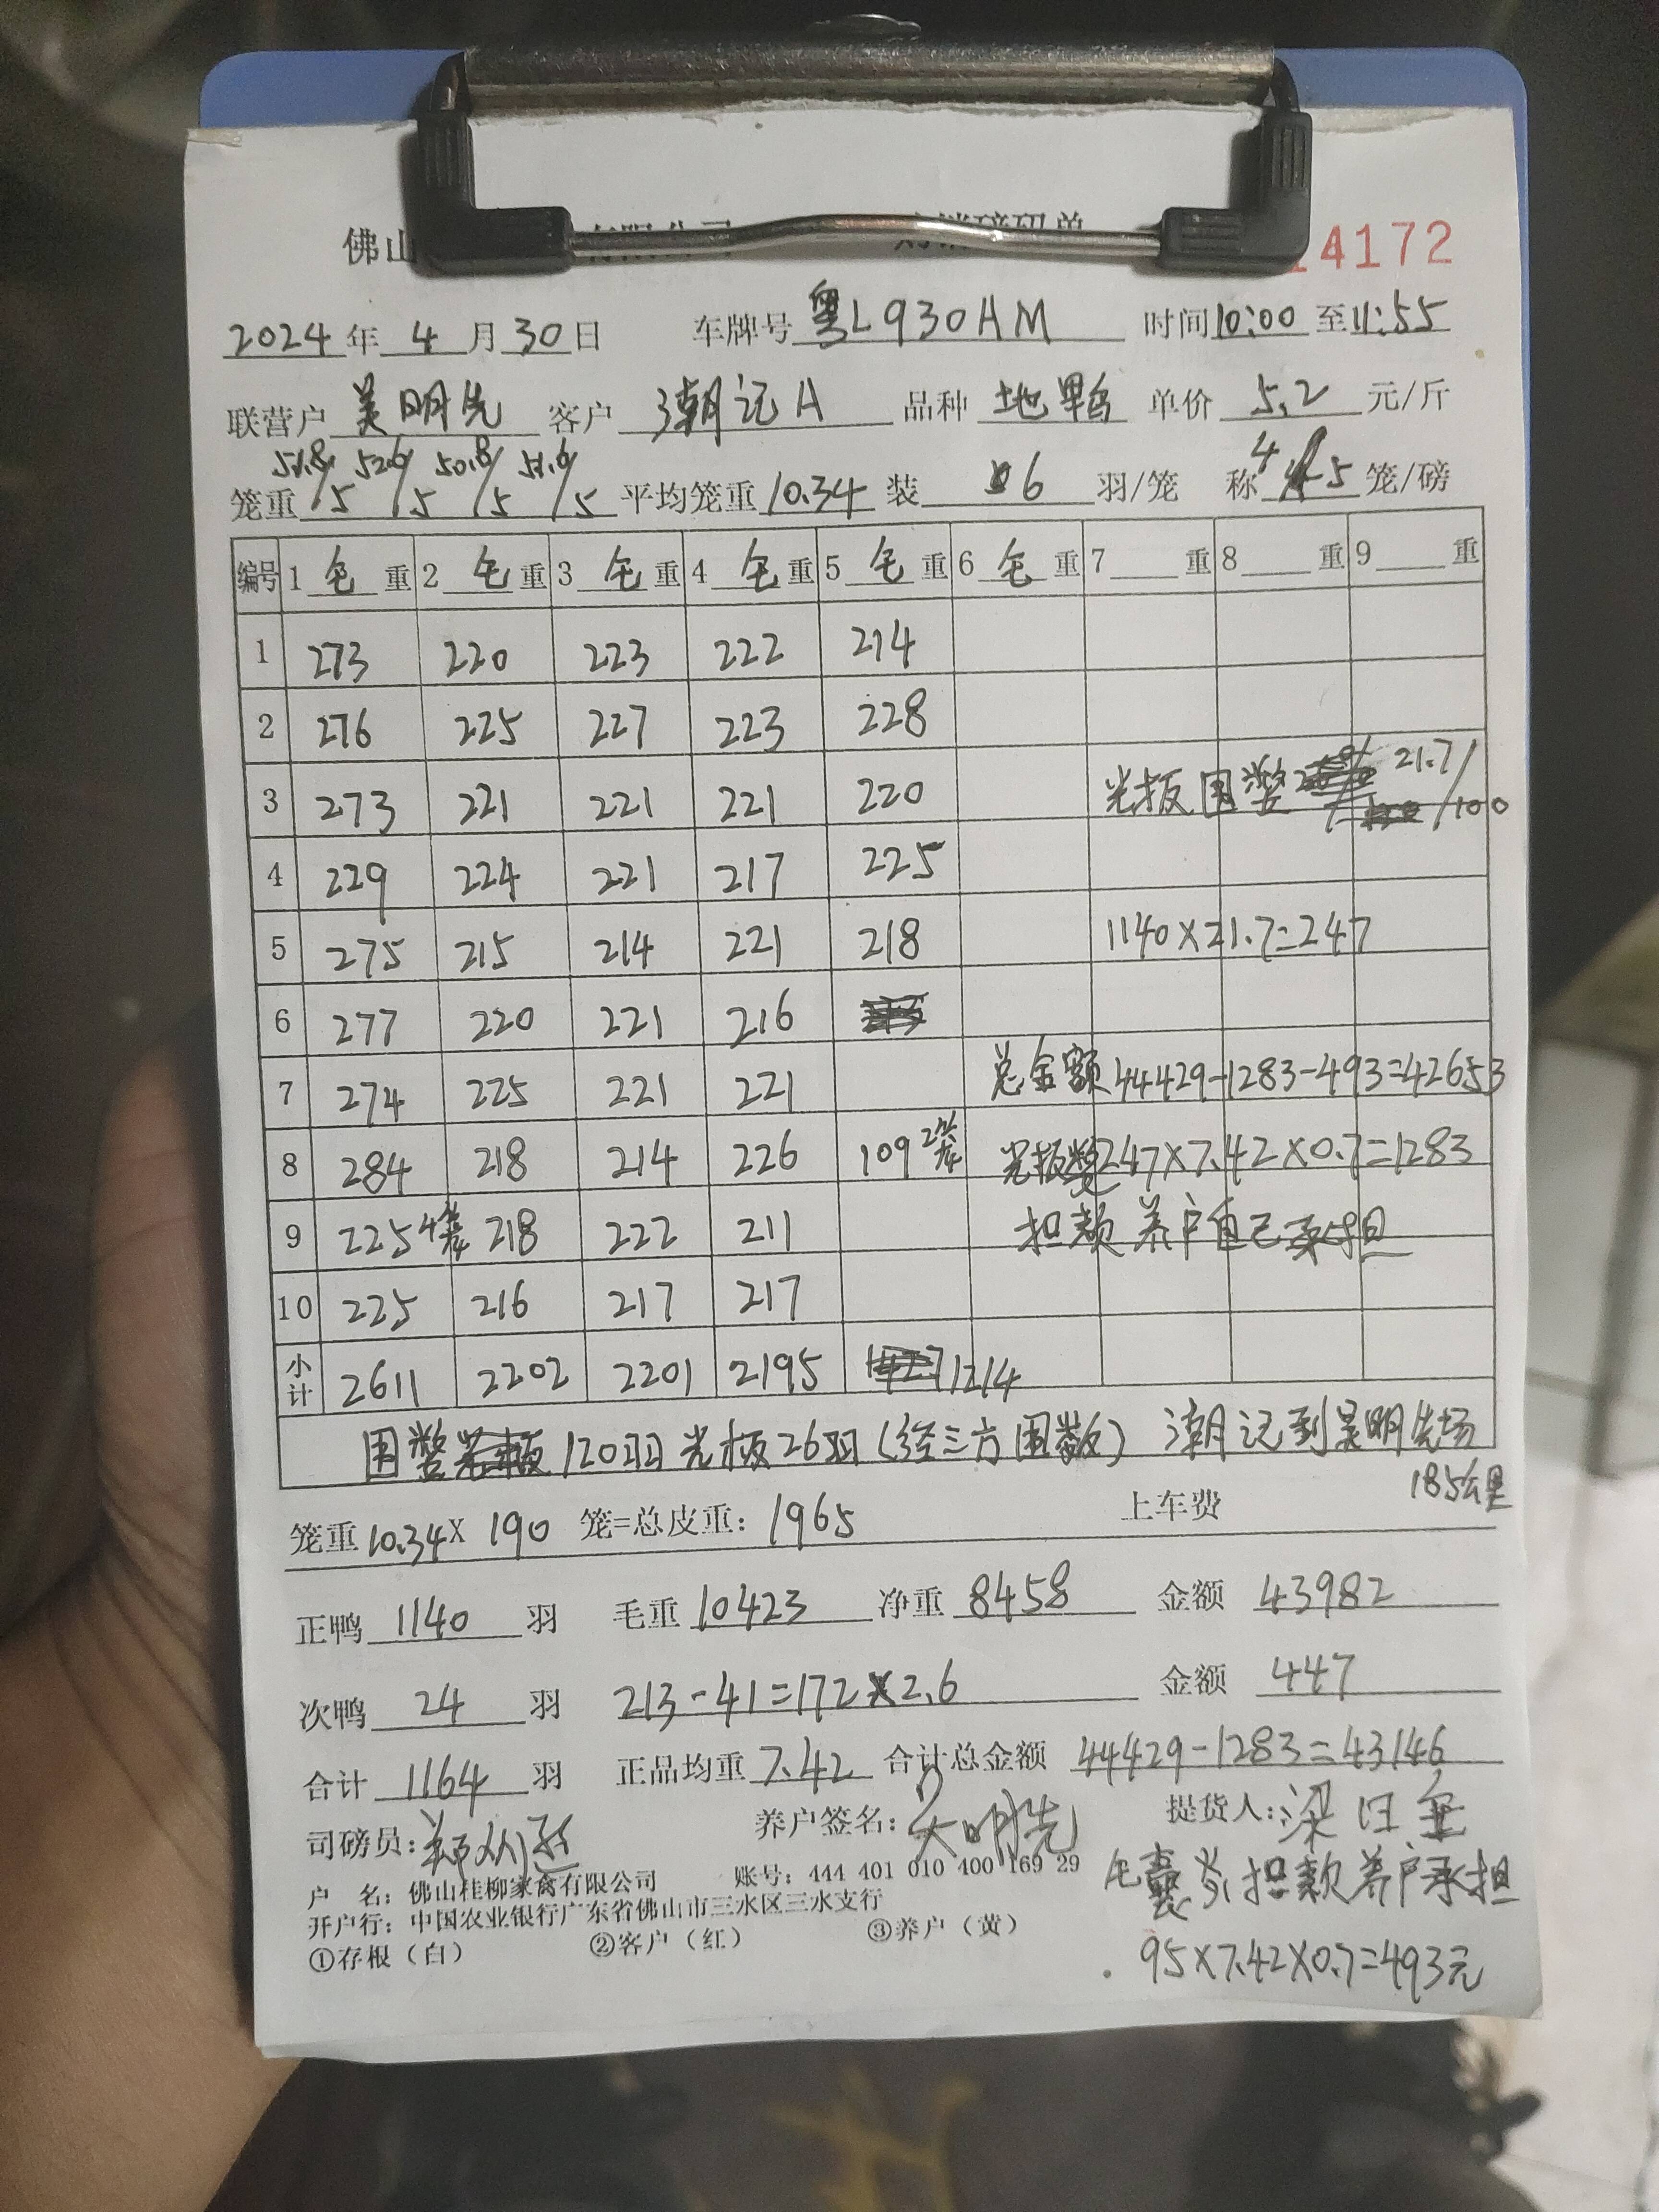 佛山
14172
2024年 4月30日 车牌号 粤L930HM 时间10:00至11:55
联营户 吴明先 客户 潮记A 品种 地鸭 单价 5.2 元/斤
51.8/ 52.6/ 50.8/ 51.6/
笼重 /5 /5 /5 /5 平均笼重10.34 装 6 羽/笼 称 4 5 笼/磅
编号 1 毛 重 2 毛 重 3 毛 重 4 毛 重 5 毛 重 6 毛 重 7 重 8 重 9 重
1 273 220 223 222 214
2 276 225 227 223 228
3 273 221 221 221 220 光板 21.7/100
4 229 224 221 217 225
5 275 215 214 221 218 1140×21.7=247
6 277 220 221 216
7 274 225 221 221 总金额44429-1283-493=42653
8 284 218 214 226 109 2笼 光板 247×7.42×0.7=1283
9 225 4笼 218 222 211 担款养户自己承担
10 225 216 217 217
小计 2611 2202 2201 2195 1214
120羽光板26羽(经三方围数) 潮记到吴明先场
185公里
笼重10.34X 190 笼=总皮重: 1965 上车费
正鸭 1140 羽 毛重 10423 净重 8458 金额 43982
次鸭 24 羽 213-41=172×2.6 金额 447
合计 1164 羽 正品均重 7.42 合计总金额 44429-1283=43146
司磅员: 养户签名: 吴明先 提货人: 梁
户 名: 佛山桂柳家禽有限公司 账号: 444 401 010 400 169 29
毛囊 担款养户承担
开户行: 中国农业银行广东省佛山市三水区三水支行
①存根(白) ②客户(红) ③养户(黄)
95×7.42×0.7=493元